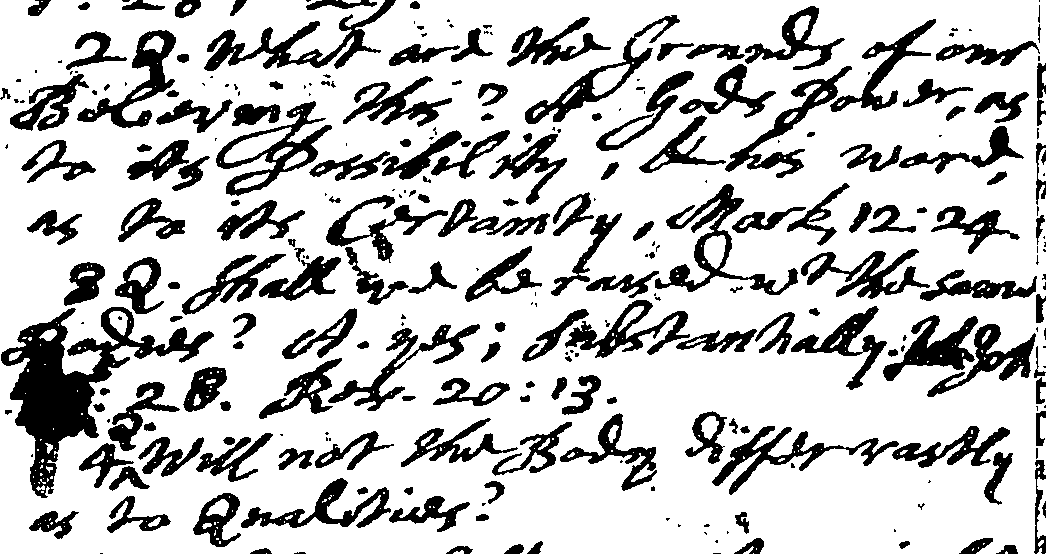 5: 28, 29.
2 Q. What are the Grounds of our
Believing this? A. Gods Power, as
to its Possibility, & his word,
as to its Certainty, Mark, 12: 24.
3 Q. Shall we be raised wt the same
Bodies? A. yes; Substantially. Joh
: 28. Rev. 20:13.
4 Q. Will not the Body differ vastly
as to Qualities?